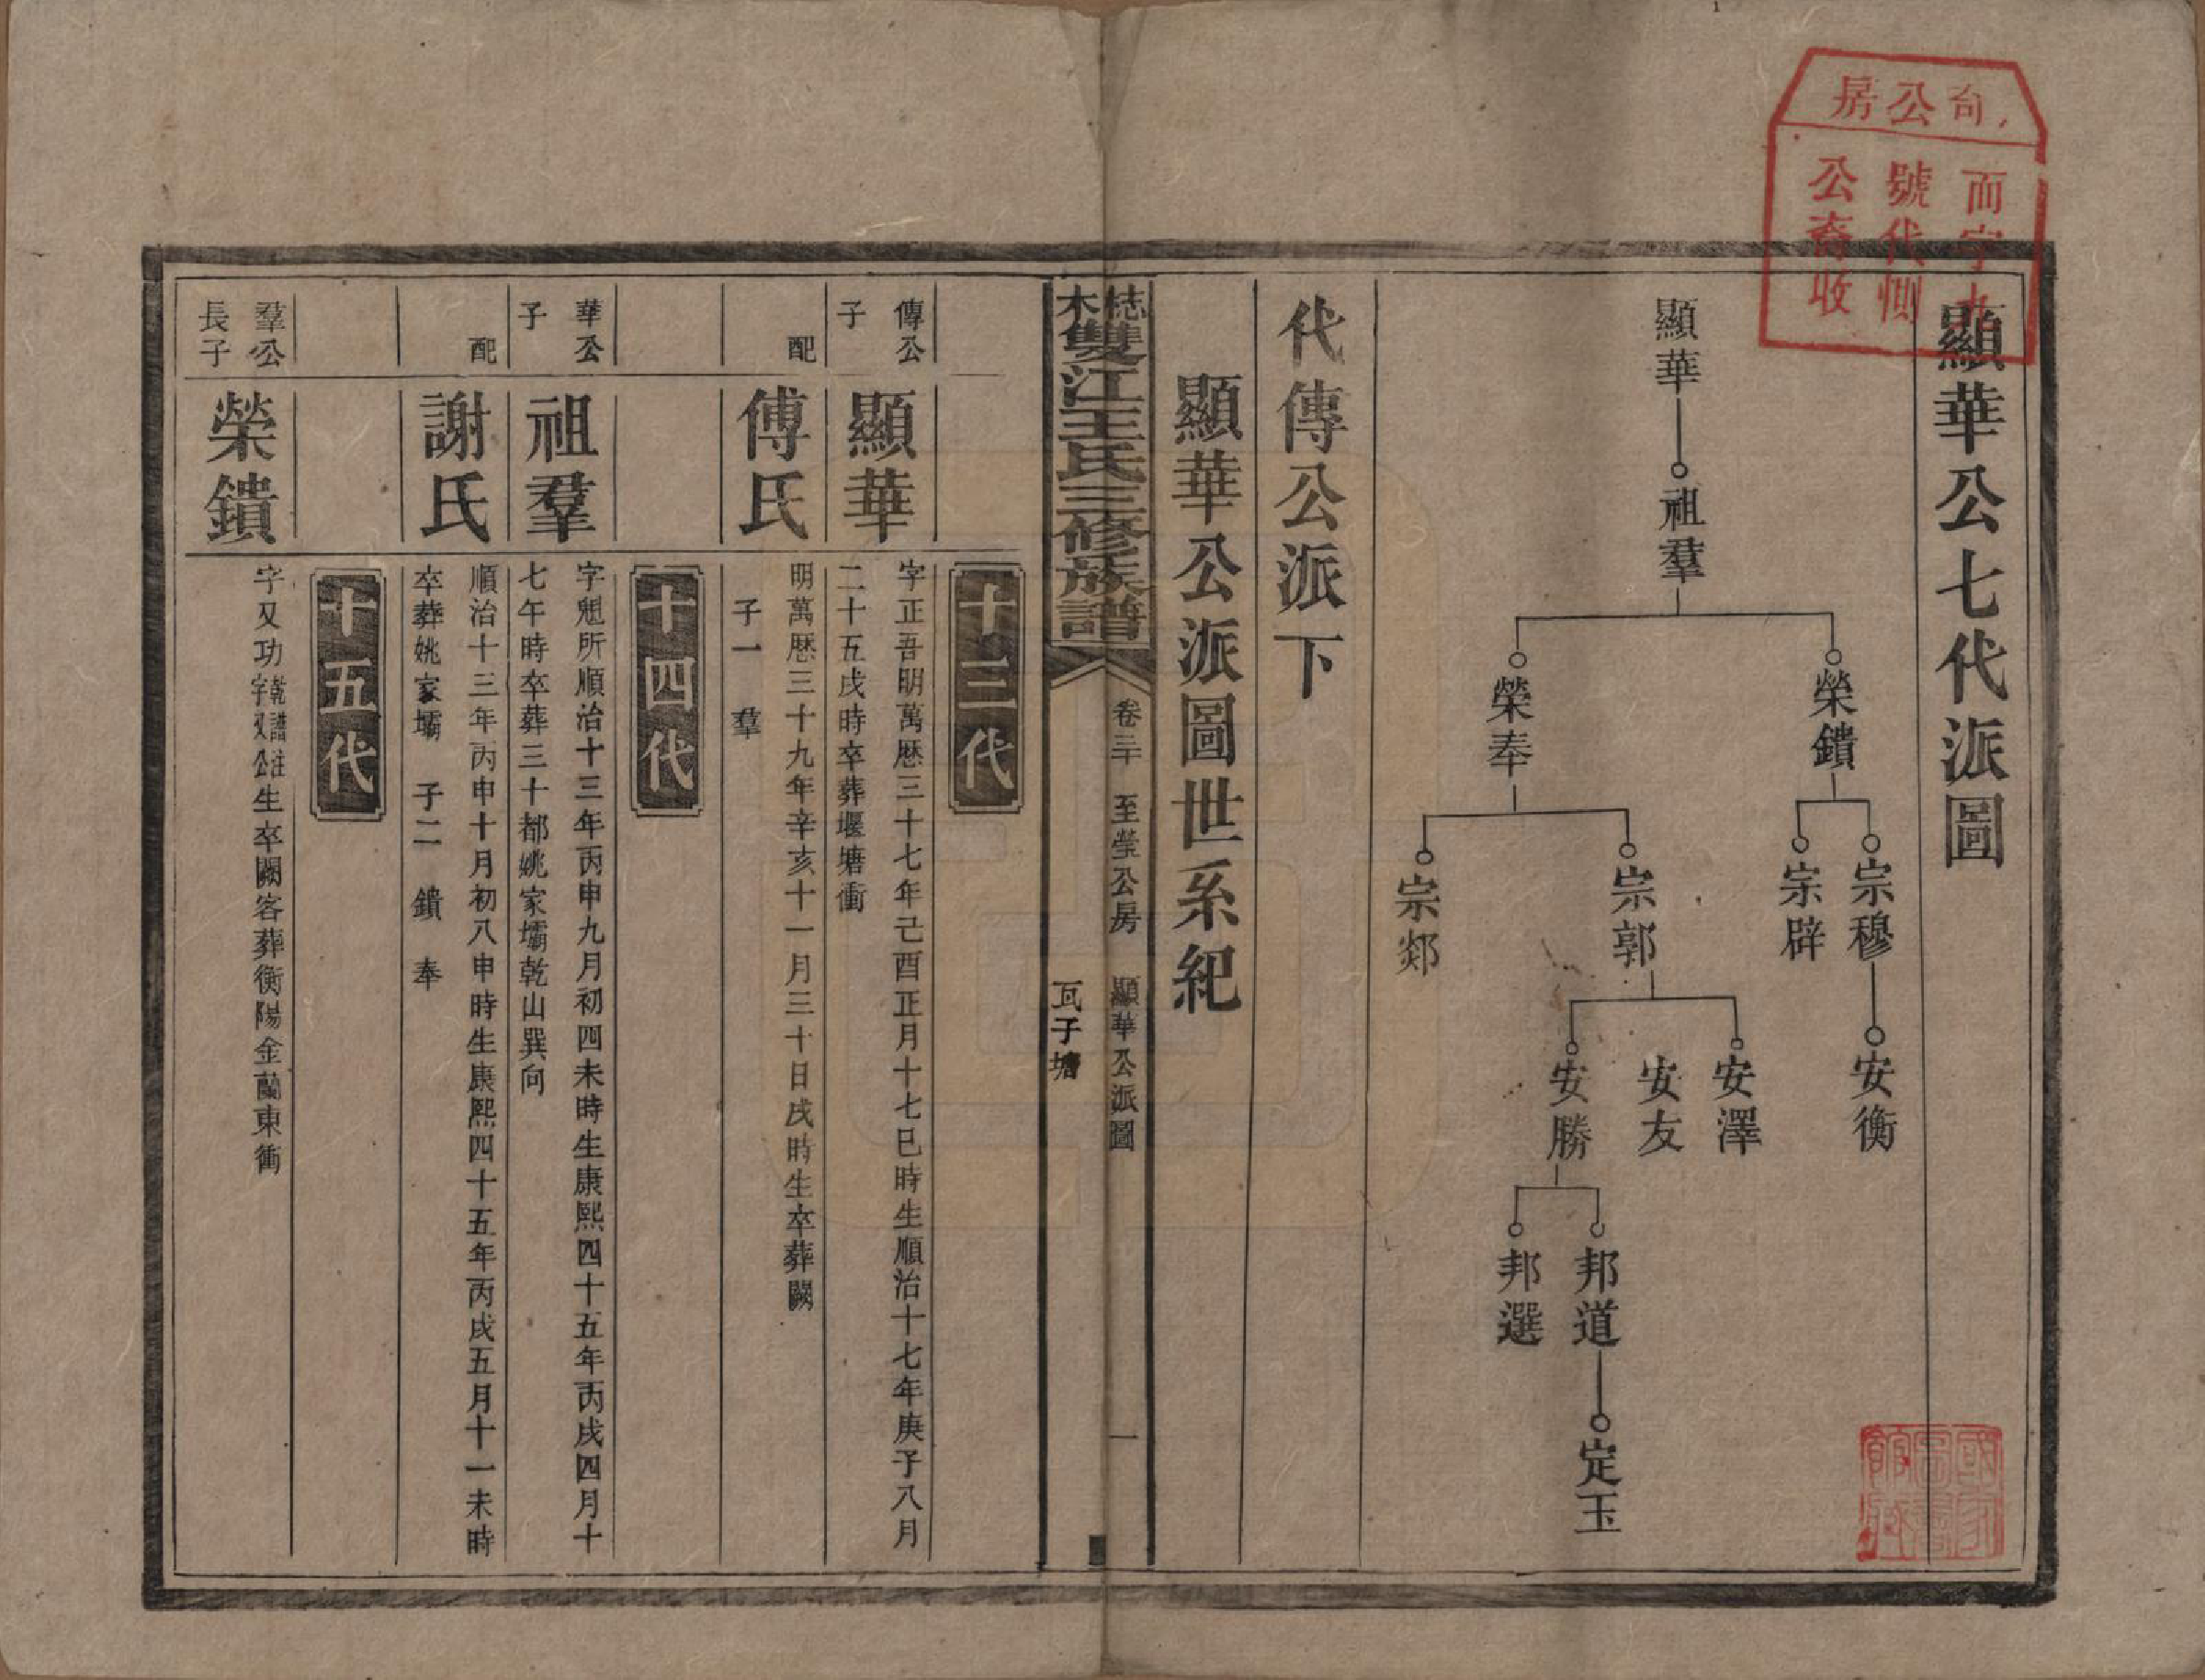 顯華公七代派圖
顯華
祖羣
榮鐀
榮奉
宗穆
宗辟
宗郭
宗郯
安衡
安澤
安友
安勝
邦道
邦選
定玉
代傳公派下
顯華公派圖世系紀
雙江王氏三修族譜
卷三十 至瑩公房 顯華公派圖 一
瓦子塘
十三代
傳公子
顯華
字正吾明萬歷三十七年己酉正月十七巳時生順治十七年庚子八月
二十五戌時卒葬堰塘衝
配
傅氏
明萬歷三十九年辛亥十一月三十日戌時生卒葬闕
子一 羣
十四代
華公子
祖羣
字魁所順治十三年丙申九月初四未時生康熙四十五年丙戌四月十
七午時卒葬三十都姚家壩乾山巽向
配
謝氏
順治十三年丙申十月初八申時生康熙四十五年丙戌五月十一未時
卒葬姚家壩 子二 鐀 奉
十五代
羣公長子
榮鐀
字又功乾譜註字又公生卒闕客葬衡陽金蘭東衝
房公
號代
公裔收